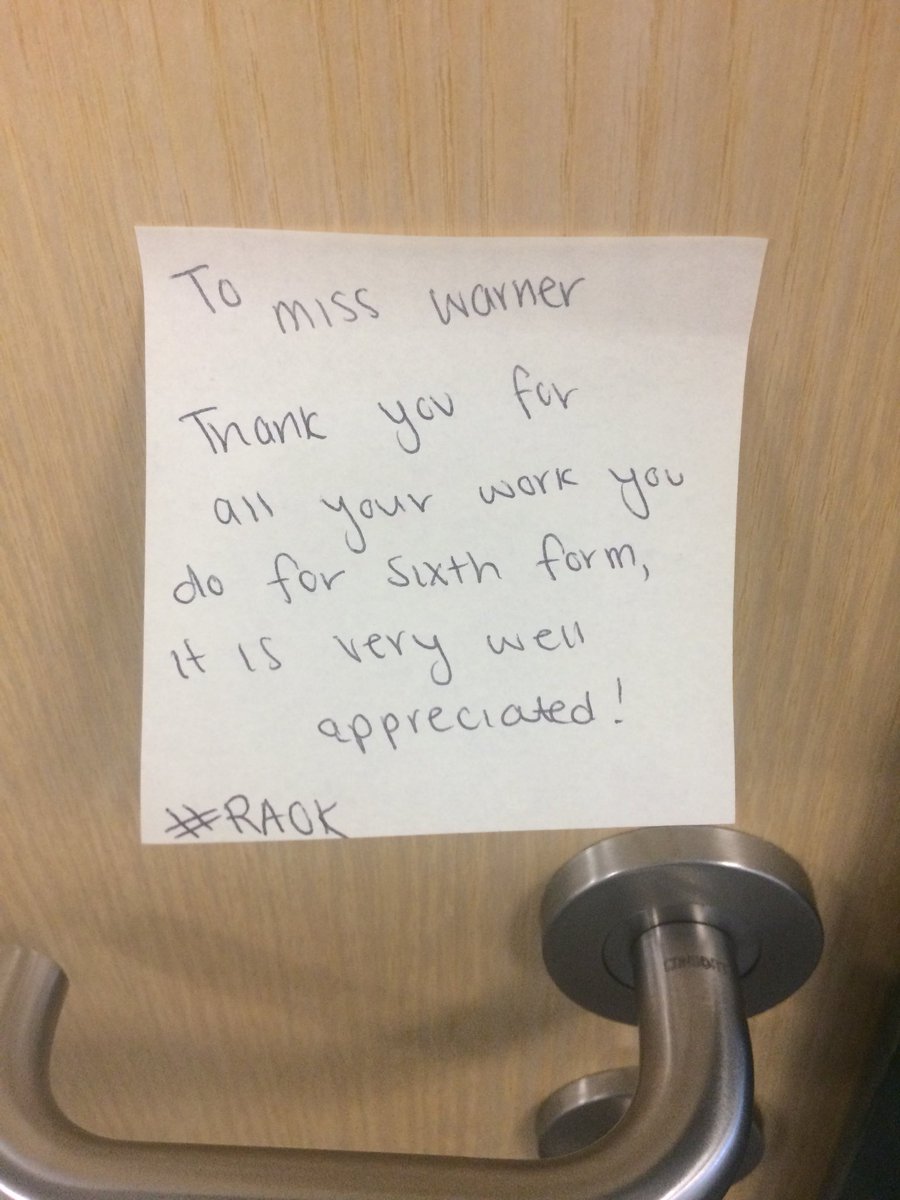 To miss warner
Thank you for
all your work you
do for sixth form,
it is very well
appreciated!
#RAOK